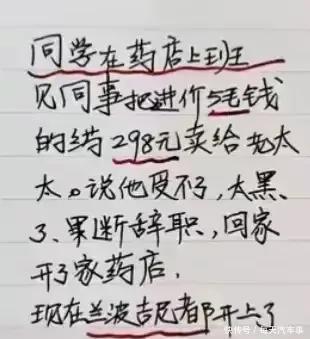 同学在药店上班
见同事把进价5毛钱
的药298元卖给老太
太。说他受不了,太黑
了、果断辞职,回家
开了家药店,
现在兰波吉尼都开上了
快传号/每天汽车事